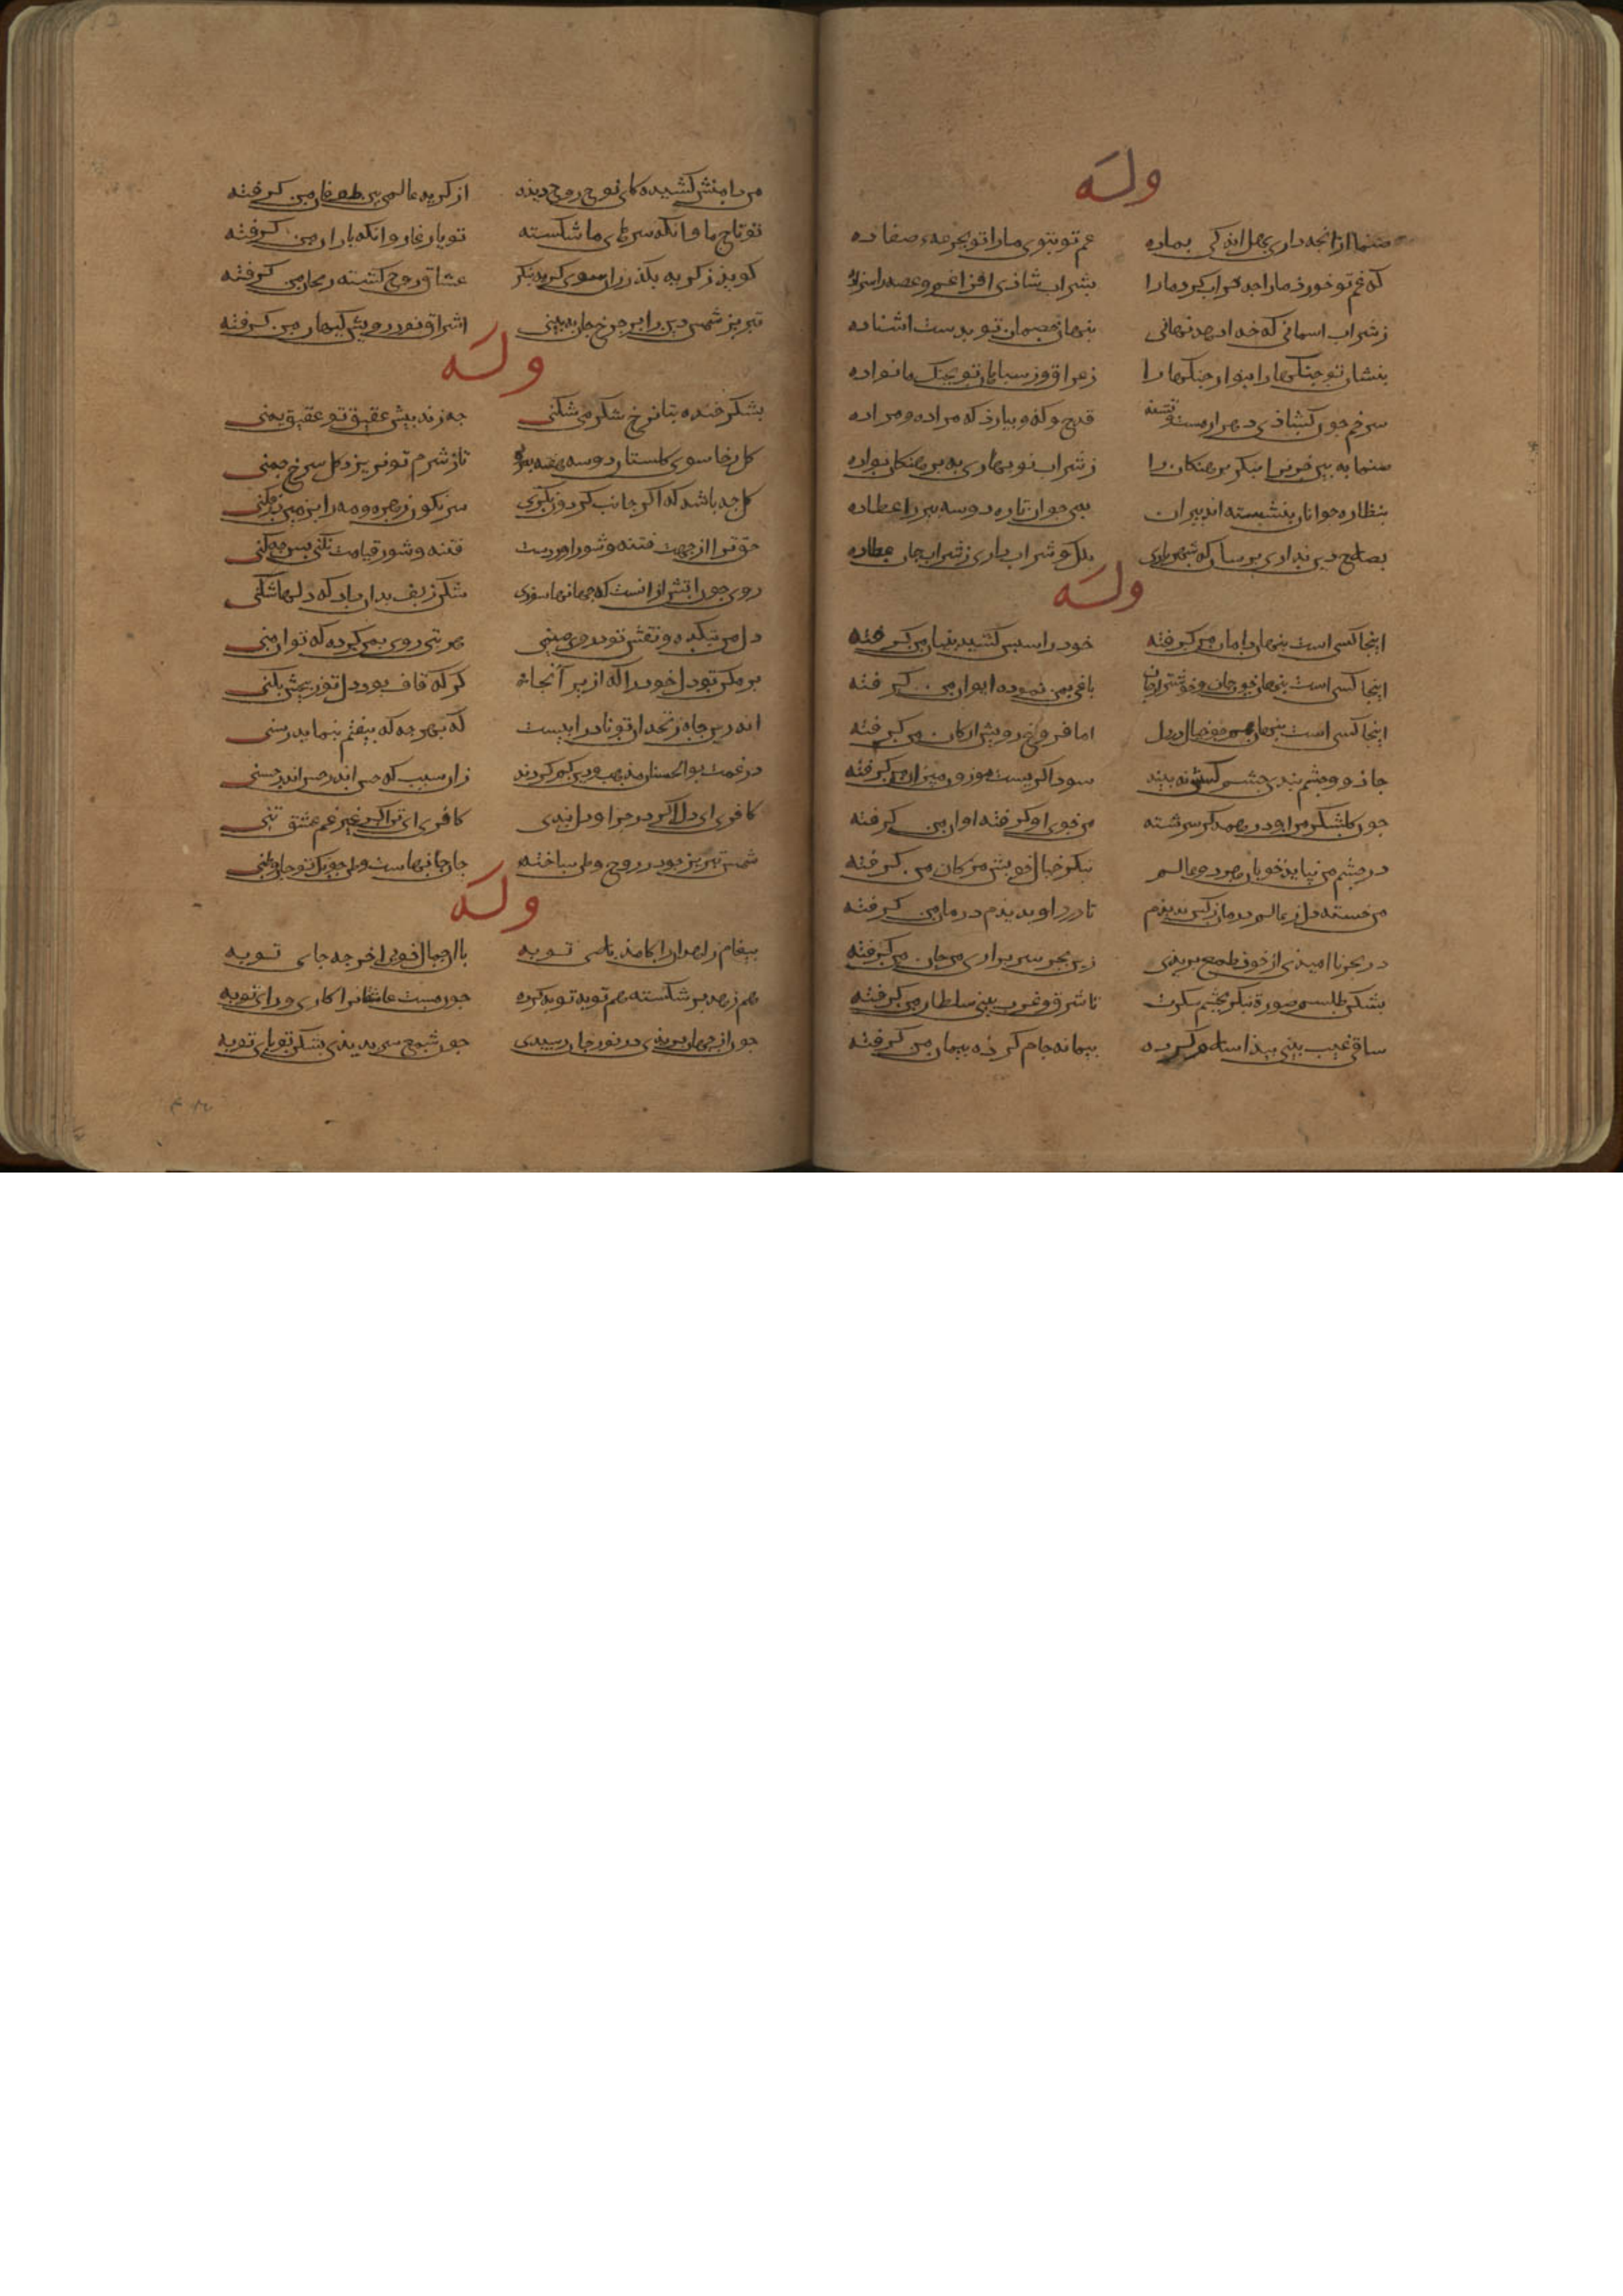 وله
صنما از آنچه داری بهل اندکی بماده غم تو بتوی ما را تو بجرعه صفا ده
که غم تو خورد ما را چه خراب کرد ما را بشراب شادی افزا غم و غصه را سزا ده
ز شراب آسمانی که خدا دهد نهانی بنهان ز خصمان تو بدست آشنا ده
بنشان تو جنگها را بنواز چنگها را ز عراق و ز سپاهان تو بچنگ ما نوا ده
سر خم چون گشادی دهزار مست و تشنه قدح و کفه و بیارذ که مراده و مراده
صنما ببین خزان را بنکر برهنکان را ز شراب نوبهاری به برهنکان نوا ده
بنظاره جوانان بنشسته اند پیران بمی جوان تازه دو سه پیر را عطا ده
بصلاح دین بداری برسان که شهریاری ملک و شراب داری ز شراب جان عطا ده
وله
اینجا کسی است پنهان دامان من کرفته خود را سپس کشیده پیشان من کرفته
اینجا کسی است پنهان چون جان و خوشتر از جان باغی بمن نموده ایوان من کرفته
اینجا کسی است پنهان همچون خیال در دل اما فروغ رویش ارکان من کرفته
جاذو و چشم بندی چشم کسش نه بیند سوداکریست موزون میزان من کرفته
چون کلشکر من او در همدکر سرشته من خوی او کرفته او آن من کرفته
در چشم من نیاید خوبان هر دو عالم بنکر خیال خوبش مژکان من کرفته
من خسته دل ز عالم درمان ز کس ندیدم تا درد او بدیدم درمان من کرفته
در بحر ناامیدی از خود طمع بریدی زین بحر سر براری مرجان من کرفته
بشکن طلسم صورت بنکر بچشم سکرت تا شرق و غرب بینی سلطان من کرفته
ساقی غیب بینی پیدا سلام کرده پیمانه جام کرده پیمان من کرفته
من دامنش کشیده کای نوح روح دیده از کریه عالمی بین طوفان من کرفته
تو تاج ما وانکه سرهای ما شکسته تو یار غار وانکه یاران من کرفته
کوید ز کریه بکذر زان سوی کریه بنکر عشاق روح کشته ریحان من کرفته
تبریز شمس دین را بر چرخ جان ببینی اشراق نور رویش کیهان من کرفته
وله
بشکر خنده بتا نرخ شکر می شکنی چه زند پیش عقیق تو عقیق یمنی
کل رخا سوی کلستان دو سه هفته بمرو تا ز شرم تو نریزد کل سرخ چمنی
کل چه باشد که اکر جانب کردون نکری سرنکون زهره و مه را بزمین درفکنی
حق ترا از جهت فتنه و شور آوردست فتنه و شور قیامت نکنی پس چه کنی
روی چون آتش از آنست که جهانها سوزی شکن زلف بدان داد که دلها شکنی
دل من بتکده و نقش تو در وی صنمی هر بتی روی بمن کرده که تو آن منی
برمکن تو دل خود را که از بر آنجا نه کر که قاف بود دل تو ز بیخش بکنی
اندرین چاه زنخدان تو نادرآبیست که بهر چه که بیفتم بنماید رسنی
در غمت بوالحسنان مذهب و دین کم کردند زان سبب که حسن اندر حسن اندر حسنی
کافری ای دل اکر در جز او دل بندی کافری ای تن اکر بر غیر غم عشق تنی
شمس تبریز چو در روح وطن ساخته جان جانهاست وطن چونک تو جان وطنی
وله
پیغام زاهدان را کامد بلای توبه با آن جمال خوبی آخر چه جای توبه
هم زهد برشکسته هم توبه توبه کرده چون هست عاشقانرا کاری ورای توبه
چون از جهان بریدی در نور جان رسیدی چون شمع سر بریدی بشکن تو پای توبه